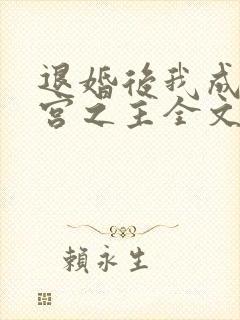 退婚後我成
宮之主全文
賴永生